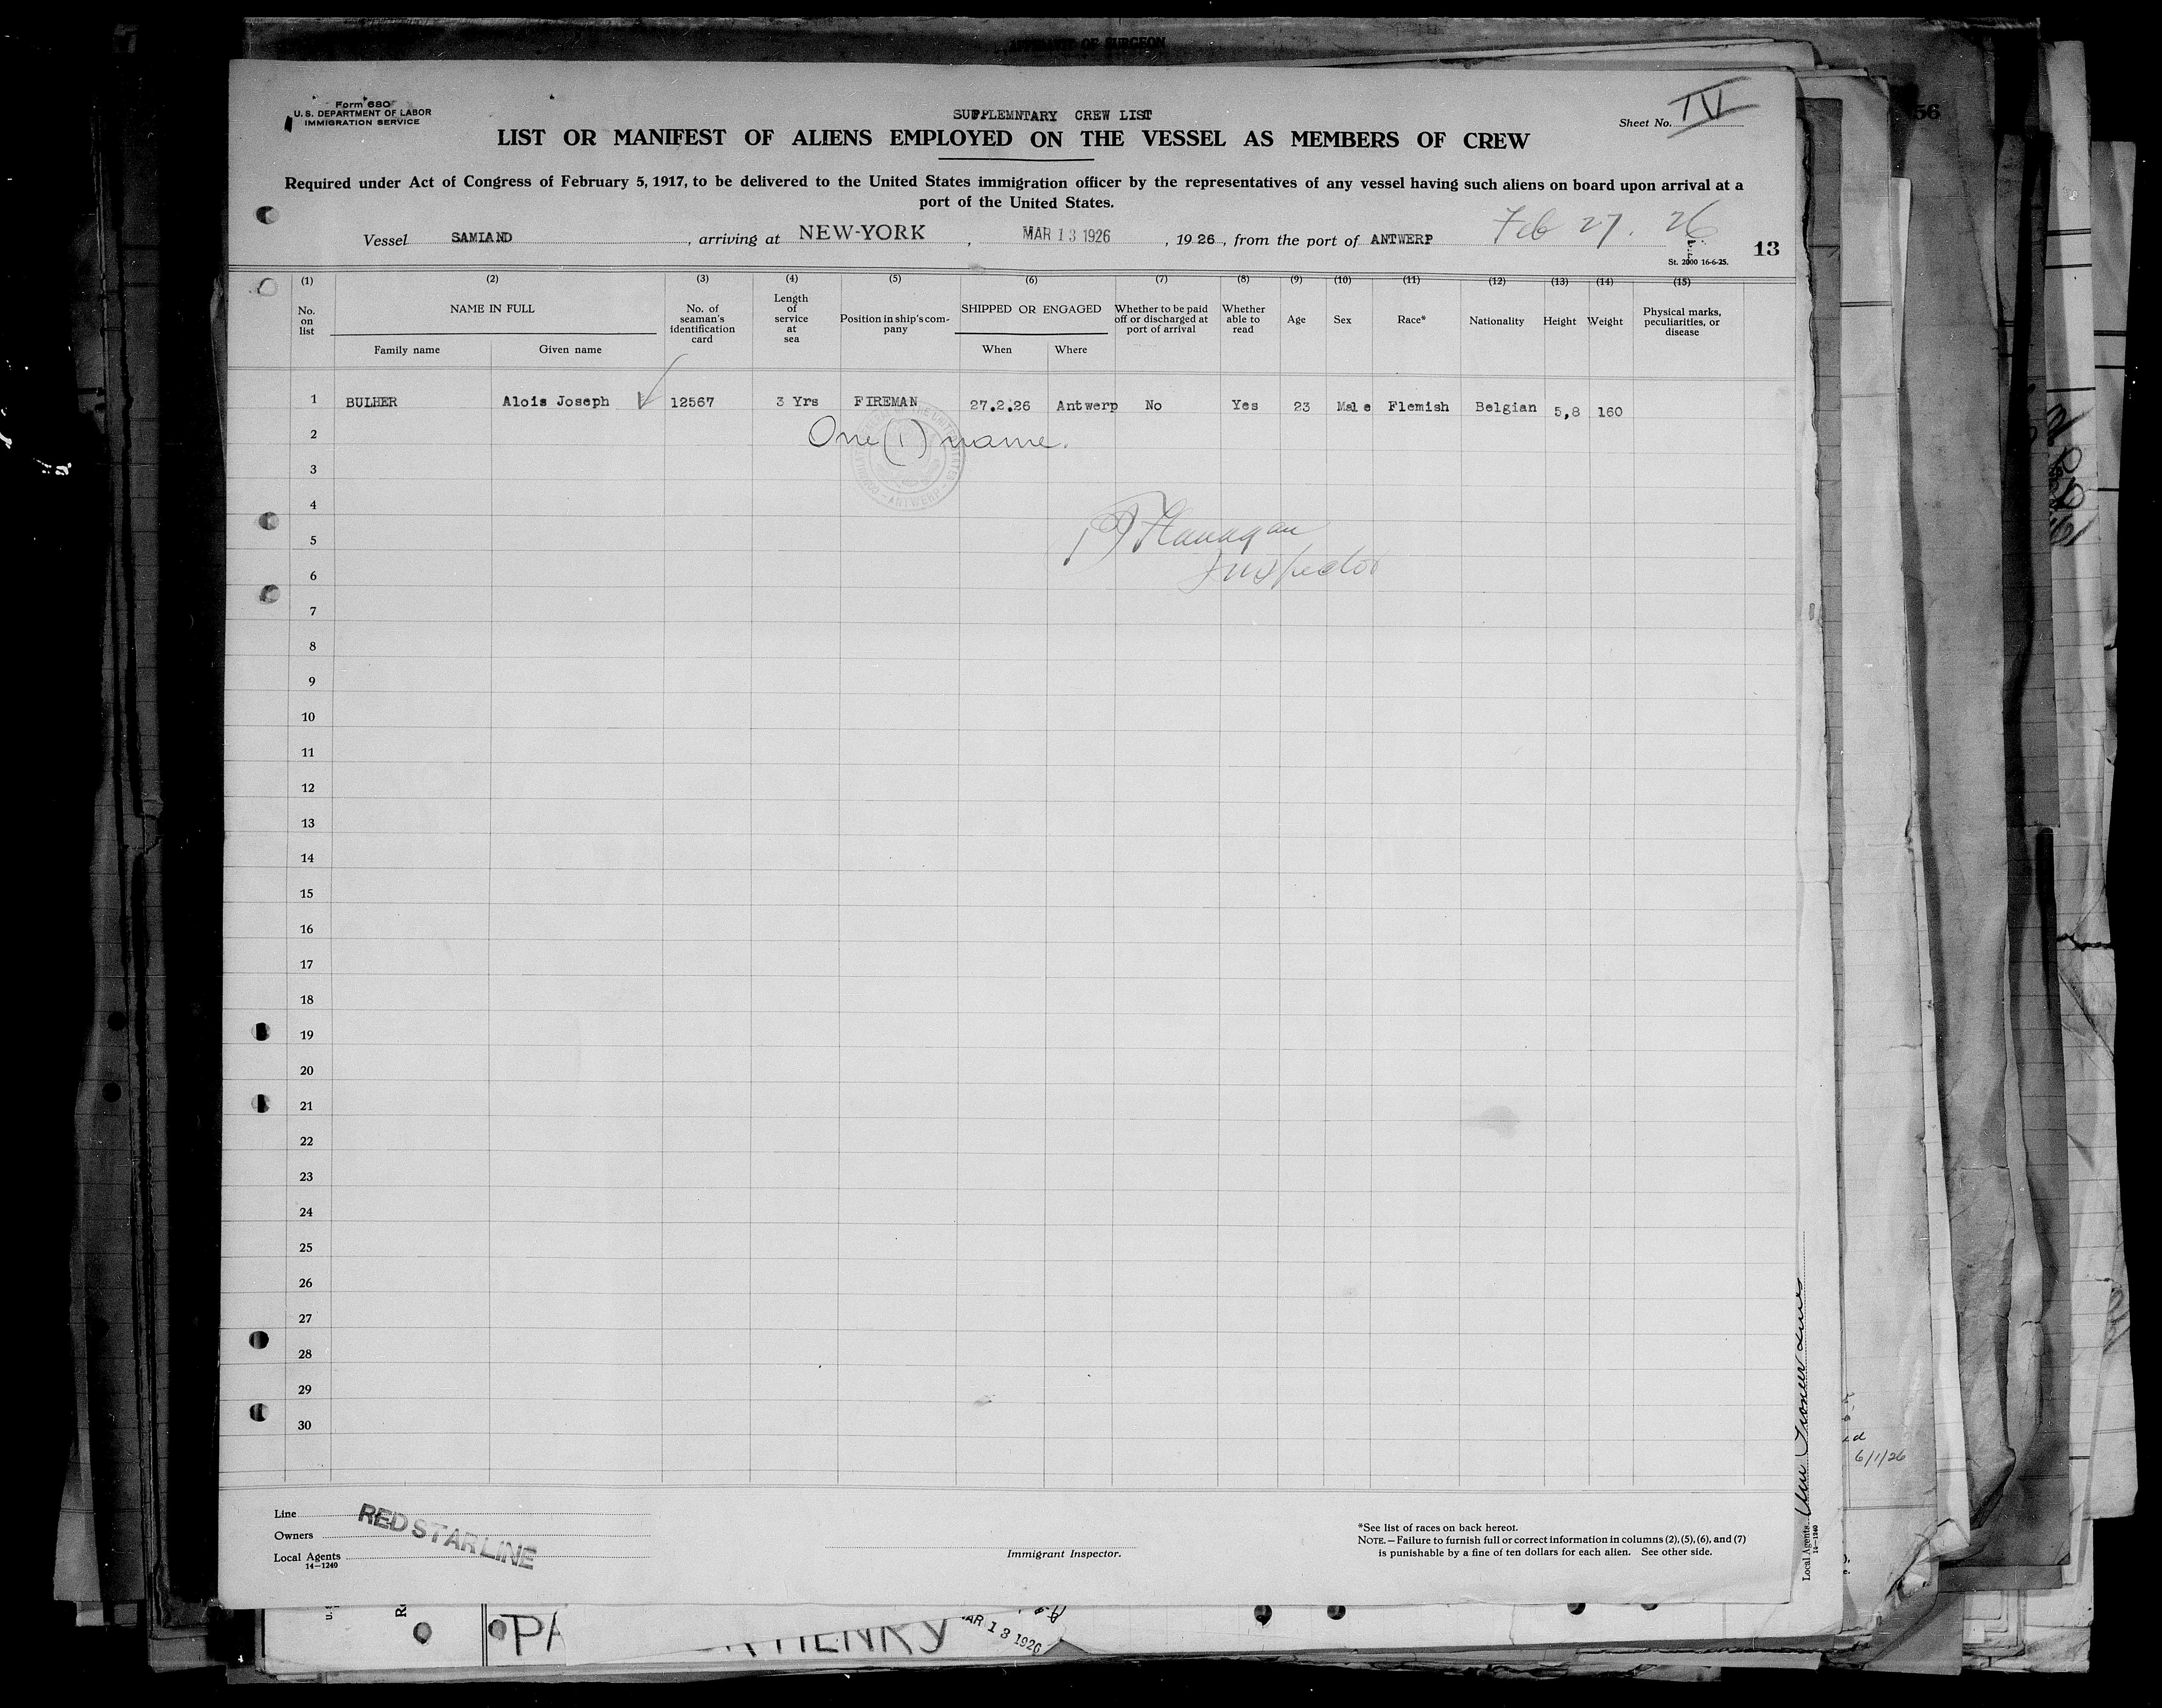 AFFIDAVIT OF SURGEON
Form 680
U. S. DEPARTMENT OF LABOR
IMMIGRATION SERVICE
SUPPLEMNTARY CREW LIST
Sheet No. IV
LIST OR MANIFEST OF ALIENS EMPLOYED ON THE VESSEL AS MEMBERS OF CREW
Required under Act of Congress of February 5, 1917, to be delivered to the United States immigration officer by the representatives of any vessel having such aliens on board upon arrival at a
port of the United States.
Vessel SAMLAND, arriving at NEW-YORK, MAR 13 1926, 1926, from the port of ANTWERP Feb 27. 26
13
St. 2000 16-6-25.
(1) (2) (3) (4) (5) (6) (7) (8) (9) (10) (11) (12) (13) (14) (15)
No. on list NAME IN FULL No. of seaman's identification card Length of service at sea Position in ship's company SHIPPED OR ENGAGED Whether to be paid off or discharged at port of arrival Whether able to read Age Sex Race* Nationality Height Weight Physical marks, peculiarities, or disease
Family name Given name When Where
1 BULHER Alois Joseph 12567 3 Yrs FIREMAN 27.2.26 Antwerp No Yes 23 Male Flemish Belgian 5,8 160
2 One (1) name.
3
4
5 Flanagan
6 Inspector
7
8
9
10
11
12
13
14
15
16
17
18
19
20
21
22
23
24
25
26
27
28
29
30
Line
Owners RED STAR LINE
Local Agents
14—1240
Immigrant Inspector.
*See list of races on back hereof.
NOTE.—Failure to furnish full or correct information in columns (2), (5), (6), and (7)
is punishable by a fine of ten dollars for each alien. See other side.
Local Agents
14—1240
6/1/26
56
HENRY
AR 13 1926